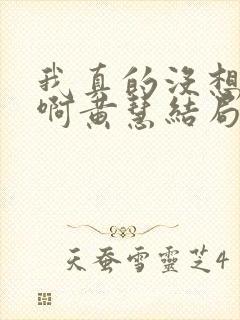 我真的没想
啊黄慧结局
天蚕雪灵芝4